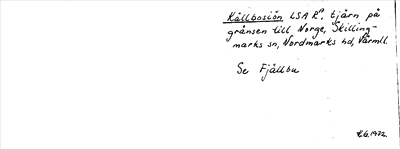 Kållbosjön LSA R:o, tjärn på
gränsen till Norge, Skilling-
marks sn, Nordmarks hd, Värml.
Se Fjällbu
R.G. 1972.